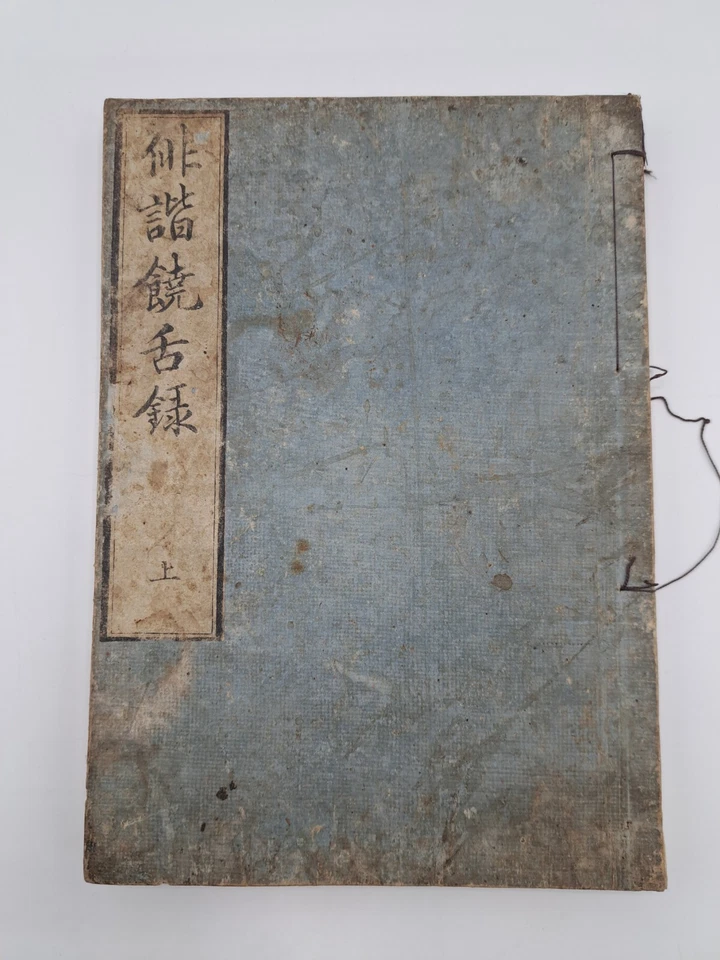 俳諧饒舌録
上